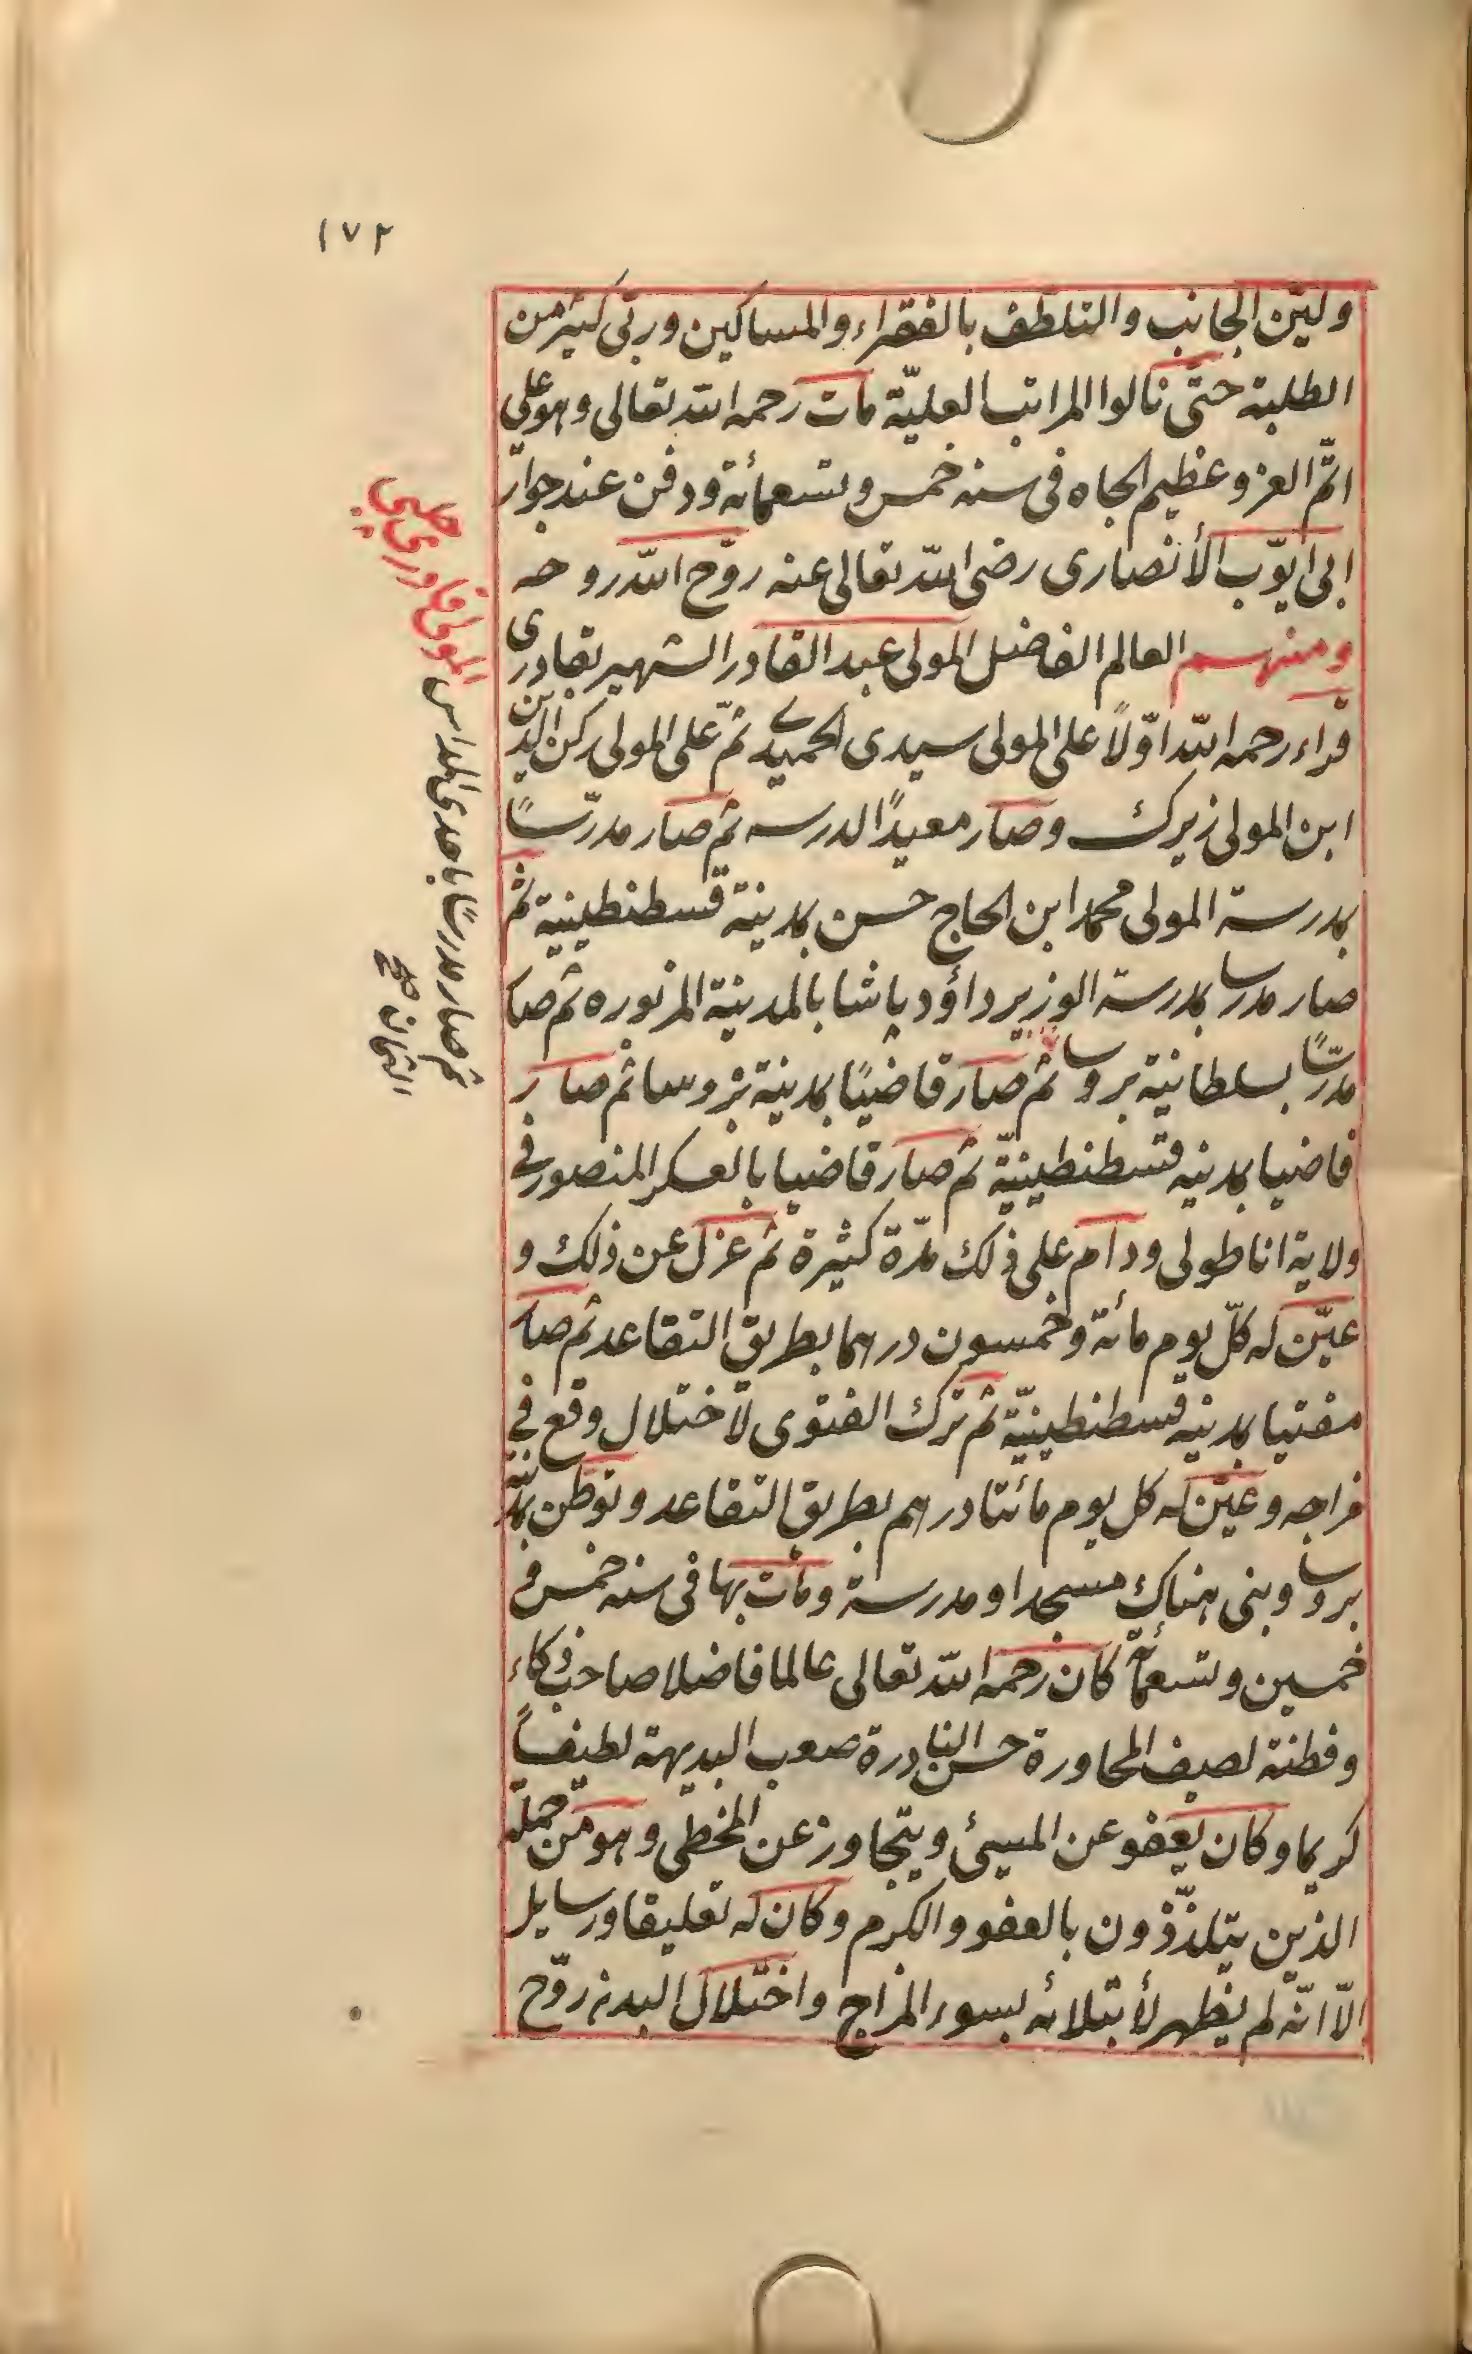 ١٧٢
ولين الجانب والتلطف بالفقراء والمساكين وربّى كثير من
الطلبة حتّى نالوا المراتب العليّة مات رحمه الله تعالى وهو على
اتمّ العز وعظيم الجاه فى سنه خمس وتسعمأئة ودفن عند جوار
ابى ايّوب الأنصارى رضى الله تعالى عنه روّح الله روحه
ومنهم العالم الفاضل المولى عبد القادر الشهير بقادرى
قراء رحمه الله اوّلًا على المولى سيدى الحميدى ثمّ على المولى ركن الدين
ابن المولى زيرك وصار معيدًا لدرسه ثم صار مدرّسًا
بمدرسة المولى محمد ابن الحاج حسن بمدينة قسطنطينية ثم
صار مدرسا بمدرسة الوزير داؤد پاشا بالمدينة المزبوره ثم صا
مدرّسًا بسلطانية بروسا ثم صار قاضيًا بمدينة بروسا ثم صار
قاضيا بمدينه قسطنطينيّة ثم صار قاضيا بالعسكر المنصور فى
ولاية اناطولى ودام على ذلك مدّة كثيرة ثم عزل عن ذلك و
عيّن له كلّ يوم مائة وخمسون درهما بطريق التقاعد ثم صا
مفتيا بمدينه قسطنطينيّة ثم ترك الفتوى لاختلال وقع فى
مزاجه وعيّن له كل يوم مائتا درهم بطريق التقاعد وتوطن بمدينة
بروسا وبنى هناك مسجدا ومدرسة ومات بها فى سنه خمس و
خمسين وتسعمأئة كان رحمه الله تعالى عالما فاضلا صاحب ذكاء
وفطنة لصيف المحاورة حسن النادرة صعب البديهة لطيفاً
كريما وكان يعفو عن المسيئ ويتجاوز عن المخطى وهو من جملة
الذين يتلذّذون بالعفو والكرم وكان له تعليقا ورسايل
الّا انّه لم يظهر لأبتلائه بسوء المزاج واختلال البدن روّح
المولى قادرى چلبى
ثم صار مدرسًا باحدى المدارس
الثمان صح